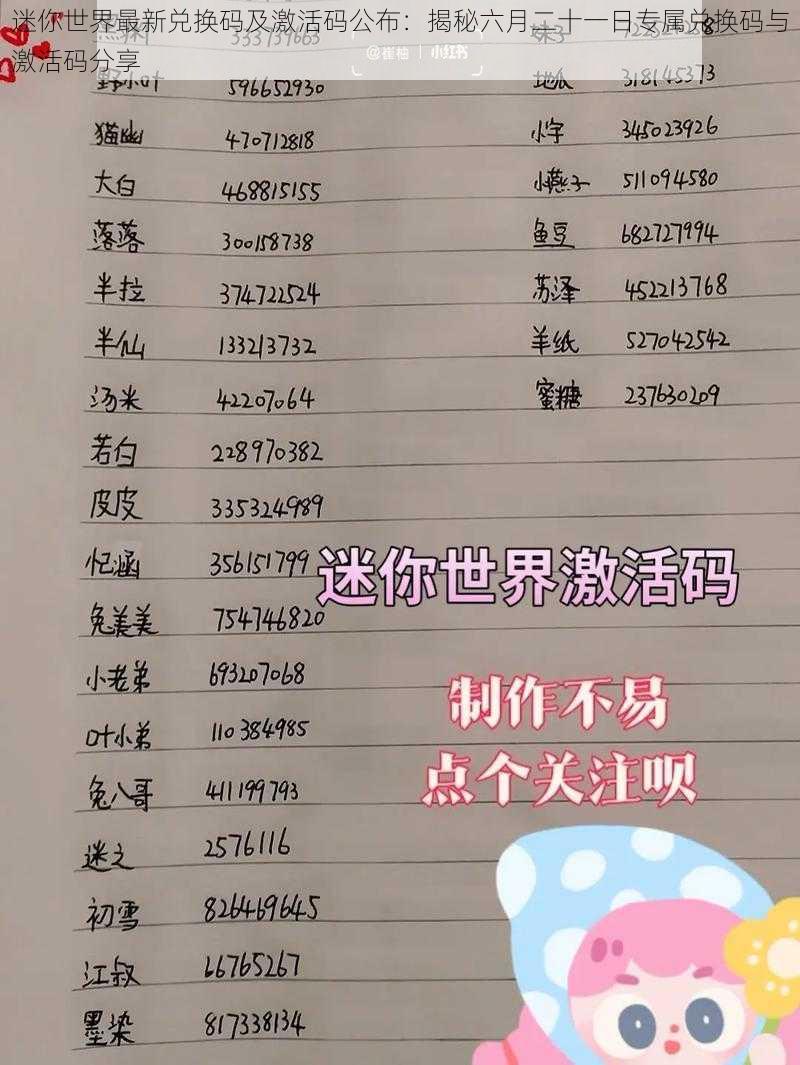 迷你世界最新兑换码及激活码公布：揭秘六月二十一日专属兑换码与
激活码分享
333739663
@崔柚 | 小红书
野小叶 596652930
地瓜 318145373
猫幽 470712818
小字 345023926
大白 468815155
小燕子 511094580
落落 300158738
鱼豆 682727994
半拉 374722524
苏泽 452213768
半仙 133213732
羊纸 527042542
汤米 42207064
蜜糖 237630209
若白 228970382
皮皮 335324989
忆涵 356151799
迷你世界激活码
兔美美 754746820
小老弟 693207068
制作不易
叶小弟 110384985
点个关注呗
兔八哥 411199793
迷之 2576116
初雪 826469645
江叔 66765267
墨染 817338134